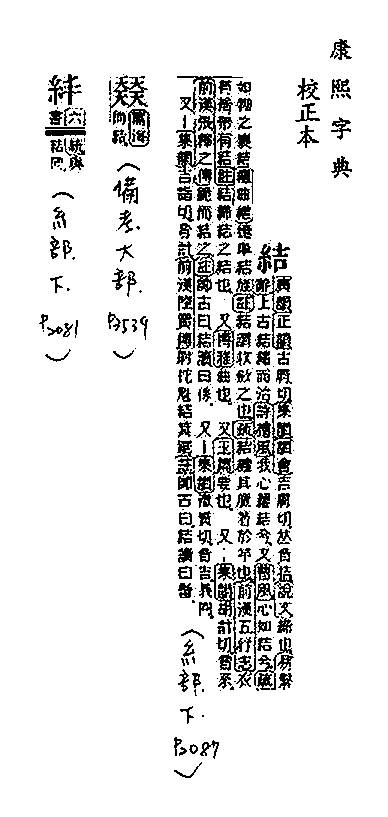 康熙字典
校正本
結
廣韻正韻古屑切集韻韻會吉屑切𠀤音拮說文締也易繫
辭上古結繩而治詩檜風我心蘊結兮又曹風心如結兮疏
如物之裹結禮曲禮德車結旌註結謂收斂之也疏結纏其旒著於竿也前漢五行志衣
有襘帶有結註締結之結也 又博雅曲也 又玉篇要也 又｜集韻胡計切音系
前漢張釋之傳跪而結之註師古曰結讀曰係 又｜集韻激質切音吉義同
又｜集韻吉詣切音計前漢陸賈傳尉佗魋結箕踞註師古曰結讀曰髻
（糸部.下.P3087）
篇海
同結
（備考.大部.P3539）
六書統與結同
（糸部.下.P3081）